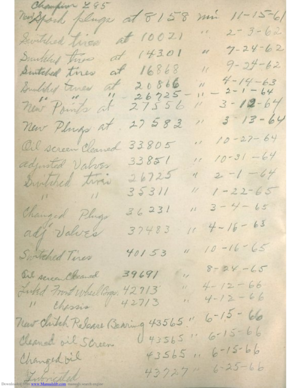 Champion L95
New Spark plugs at 8158 min 11-15-61
Switched tires at 10021 " 2-3-62
Switched tires at 14301 " 7-24-62
Switched tires at 16868 " 9-24-62
Switched tires at 20866 " 4-14-63
" " " 26725 " 2-1-64
New Points at 27556 " 3-12-64
New Plugs at 27582 " 3-13-64
Oil screen Cleaned 33805 " 10-27-64
adjusted Valves 33851 " 10-31-64
Switched tires 26725 " 2-1-64
" " 35311 " 1-22-65
Changed Plugs 36231 " 3-4-65
adj Valves 37483 " 4-16-65
Switched Tires 40153 " 10-16-65
Oil screen Cleaned 39691 " 8-24-65
Front Wheel 42713 " 4-12-66
" Chassis " 42713 " 4-12-66
New Clutch Release Bearing 43565 " 6-15-66
Cleaned oil Screen 43565 " 6-15-66
Changed oil 43565 " 6-15-66
Lubricated 43727 " 6-25-66